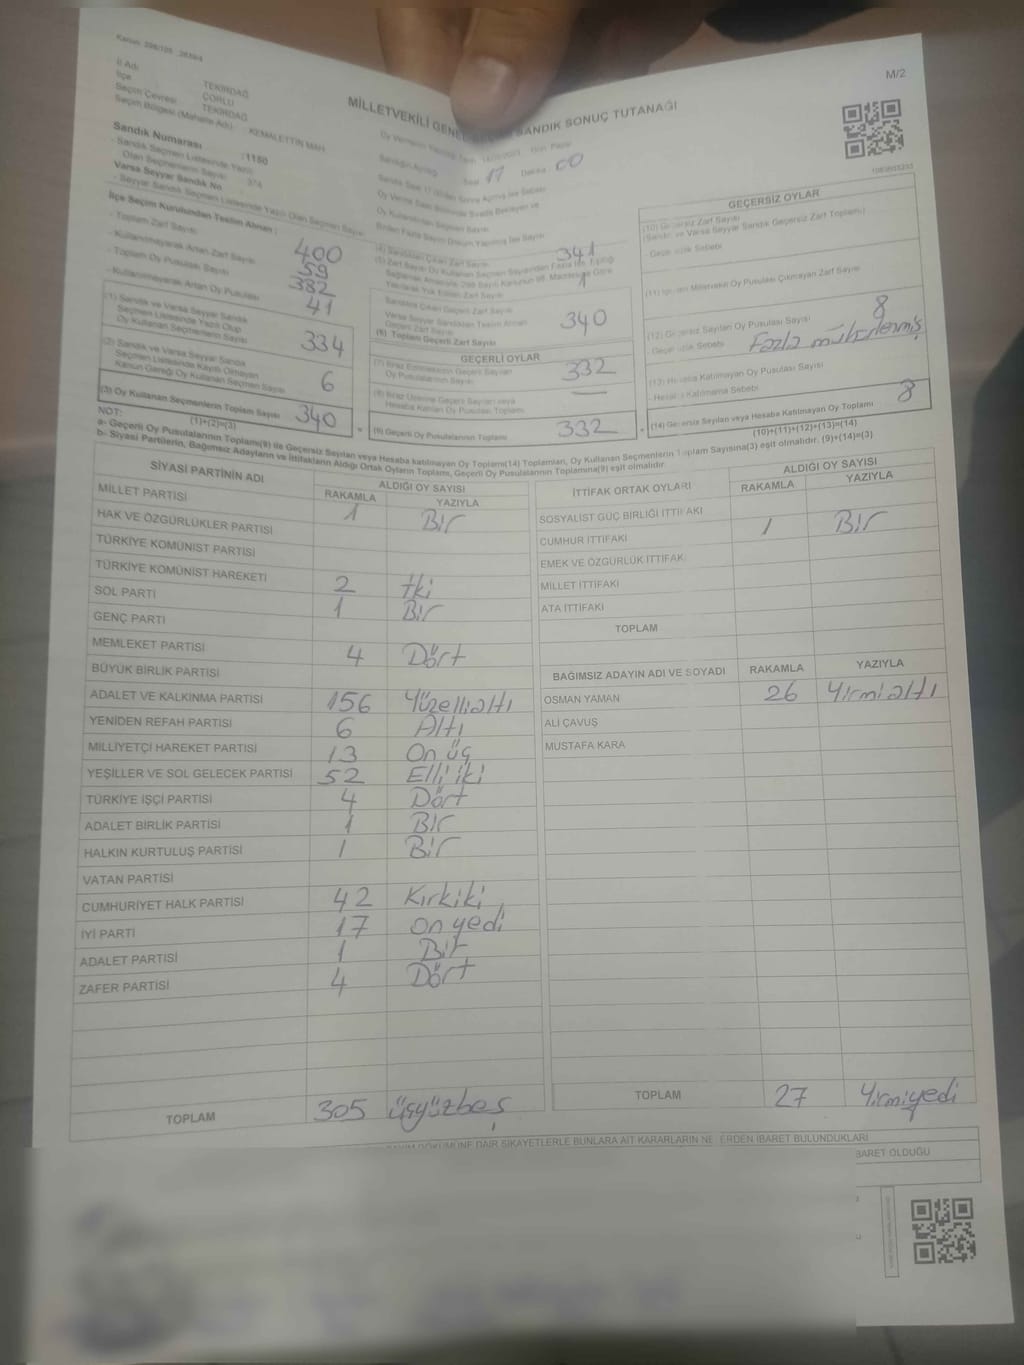 Kanun: 298/105 , 2839/4
M/2
MİLLETVEKİLİ GENEL SEÇİMİ SANDIK SONUÇ TUTANAĞI
İl Adı : TEKİRDAĞ
İlçe : ÇORLU
Seçim Çevresi : TEKİRDAĞ
Seçim Bölgesi (Mahalle Adı) : KEMALETTİN MAH.
Sandık Numarası : 1150
- Sandık Seçmen Listesinde Yazılı
Olan Seçmenlerin Sayısı : 374
Varsa Seyyar Sandık No
- Seyyar Sandık Seçmen Listesinde Yazılı Olan Seçmen Sayısı
17 00
İlçe Seçim Kurulundan Teslim Alınan :
- Toplam Zarf Sayısı 400
- Kullanılmayarak Artan Zarf Sayısı 59
- Toplam Oy Pusulası Sayısı 382
- Kullanılmayarak Artan Oy Pusulası 41
(1) Sandık ve Varsa Seyyar Sandık
Seçmen Listesinde Yazılı Olup
Oy Kullanan Seçmenlerin Sayısı 334
(2) Sandık ve Varsa Seyyar Sandık
Seçmen Listesinde Kayıtlı Olmayan
Kanun Gereği Oy Kullanan Seçmen Sayısı 6
(3) Oy Kullanan Seçmenlerin Toplam Sayısı 340
(1)+(2)=(3)
(4) Sandıktan Çıkan Zarf Sayısı 341
1
Sandıktan Çıkan Geçerli Zarf Sayısı
Varsa Seyyar Sandıktan Teslim Alınan
Geçerli Zarf Sayısı
(6) Toplam Geçerli Zarf Sayısı 340
GEÇERLİ OYLAR
(7) İtiraz Edilmeksizin Geçerli Sayılan
Oy Pusulalarının Sayısı 332
(8) İtiraz Üzerine Geçerli Sayılan veya
Hesaba Katılan Oy Pusulası Toplamı —
(9) Geçerli Oy Pusulalarının Toplamı 332
GEÇERSİZ OYLAR
(10) Geçersiz Zarf Sayısı
(Sandık ve Varsa Seyyar Sandık Geçersiz Zarf Toplamı)
- Geçersizlik Sebebi
(11) İçinden Milletvekili Oy Pusulası Çıkmayan Zarf Sayısı
(12) Geçersiz Sayılan Oy Pusulası Sayısı 8
- Geçersizlik Sebebi Fazla mühürlenmiş
(13) Hesaba Katılmayan Oy Pusulası Sayısı
- Hesaba Katılmama Sebebi
(14) Geçersiz Sayılan veya Hesaba Katılmayan Oy Toplamı 8
(10)+(11)+(12)+(13)=(14)
NOT:
a- Geçerli Oy Pusulalarının Toplamı(9) ile Geçersiz Sayılan veya Hesaba katılmayan Oy Toplamı(14) Toplamları, Oy Kullanan Seçmenlerin Toplam Sayısına(3) eşit olmalıdır. (9)+(14)=(3)
b- Siyasi Partilerin, Bağımsız Adayların ve İttifakların Aldığı Ortak Oyların Toplamı, Geçerli Oy Pusulalarının Toplamına(9) eşit olmalıdır.
SİYASİ PARTİNİN ADI ALDIĞI OY SAYISI
RAKAMLA YAZIYLA
MİLLET PARTİSİ 1 Bir
HAK VE ÖZGÜRLÜKLER PARTİSİ
TÜRKİYE KOMÜNİST PARTİSİ
TÜRKİYE KOMÜNİST HAREKETİ 2 İki
SOL PARTİ 1 Bir
GENÇ PARTİ
MEMLEKET PARTİSİ 4 Dört
BÜYÜK BİRLİK PARTİSİ
ADALET VE KALKINMA PARTİSİ 156 Yüzellialtı
YENİDEN REFAH PARTİSİ 6 Altı
MİLLİYETÇİ HAREKET PARTİSİ 13 On üç
YEŞİLLER VE SOL GELECEK PARTİSİ 52 Elli iki
TÜRKİYE İŞÇİ PARTİSİ 4 Dört
ADALET BİRLİK PARTİSİ 1 Bir
HALKIN KURTULUŞ PARTİSİ 1 Bir
VATAN PARTİSİ
CUMHURİYET HALK PARTİSİ 42 Kırkiki
İYİ PARTİ 17 on yedi
ADALET PARTİSİ 1 Bir
ZAFER PARTİSİ 4 Dört
TOPLAM 305 üçyüzbeş
İTTİFAK ORTAK OYLARI ALDIĞI OY SAYISI
RAKAMLA YAZIYLA
SOSYALİST GÜÇ BİRLİĞİ İTTİFAKI
CUMHUR İTTİFAKI 1 Bir
EMEK VE ÖZGÜRLÜK İTTİFAKI
MİLLET İTTİFAKI
ATA İTTİFAKI
TOPLAM
BAĞIMSIZ ADAYIN ADI VE SOYADI RAKAMLA YAZIYLA
OSMAN YAMAN 26 Yirmialtı
ALİ ÇAVUŞ
MUSTAFA KARA
TOPLAM 27 Yirmiyedi
SAYIM DÖKÜMÜNE DAİR ŞİKAYETLERLE BUNLARA AİT KARARLARIN NELERDEN İBARET BULUNDUKLARI
BARET OLDUĞU